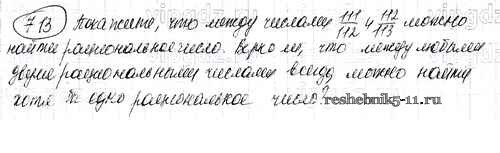 713 Докажите, что между числами 111/112 и 112/113 можно
найти рациональное число. Верно ли, что между любыми
двумя рациональными числами всегда можно найти
хотя бы одно рациональное число?
reshebnik5-11.ru